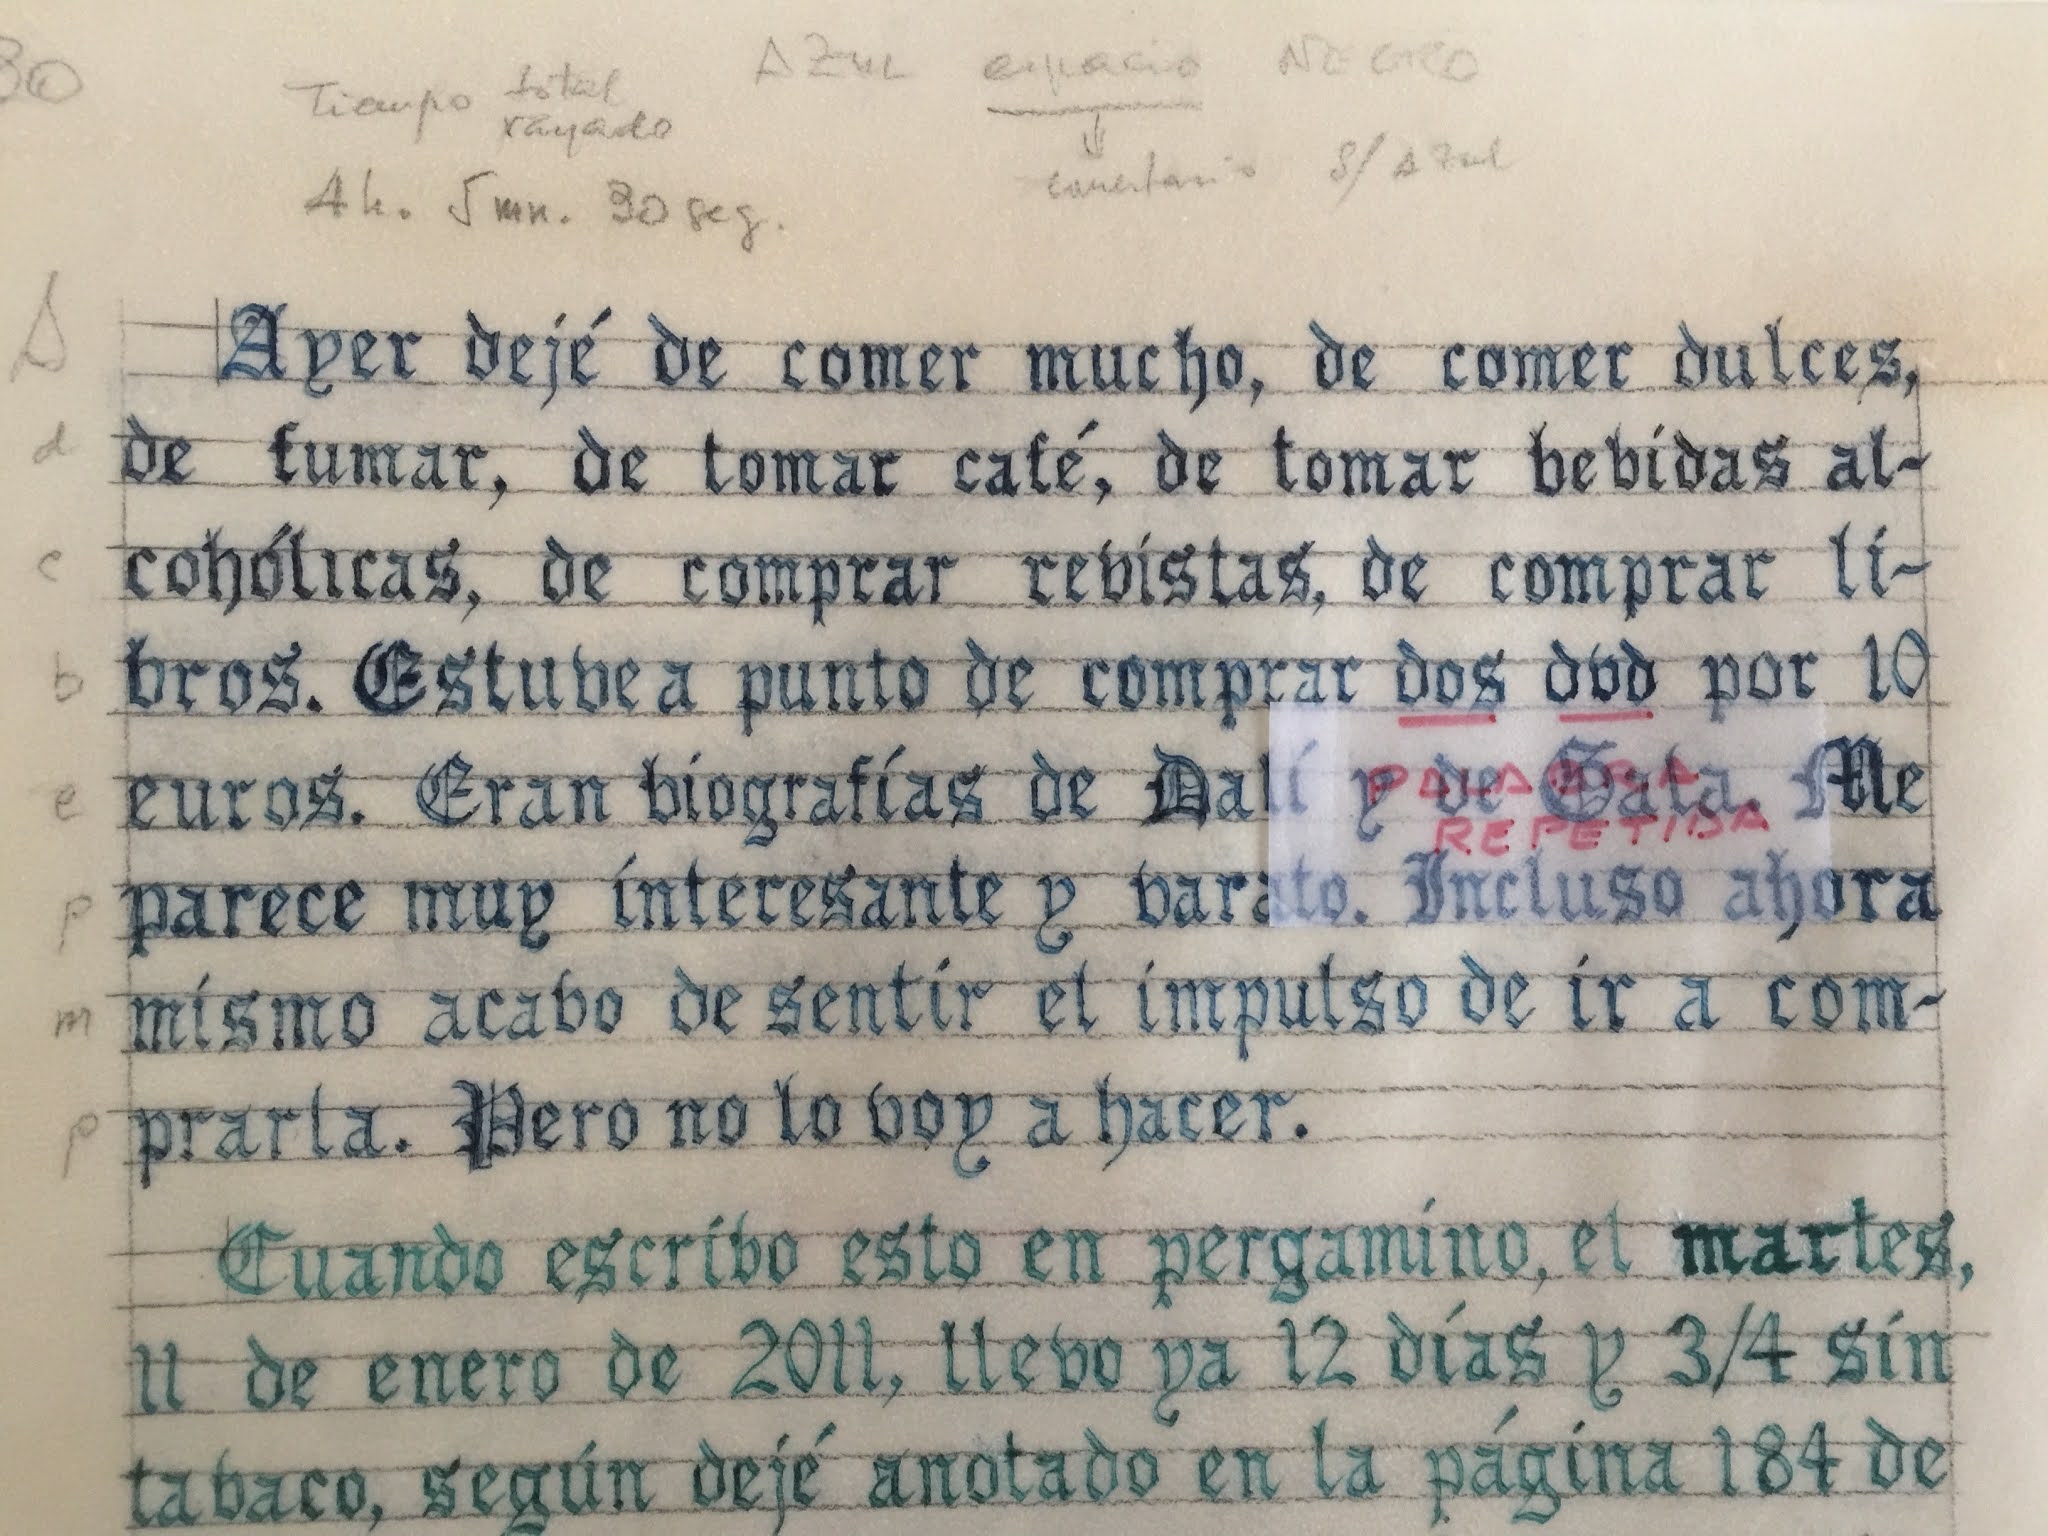 30
Tiempo total
rayado
4h. 5mn. 30seg.
AZUL espacio NEGRO
comentario S/AZUL
A
Ayer dejé de comer mucho, de comer dulces,
d
de fumar, de tomar café, de tomar bebidas al-
c
cohólicas, de comprar revistas, de comprar li-
b
bros. Estuve a punto de comprar dos dvd por 10
e
euros. Eran biografías de Dalí y de Gala. Me
PALABRA
REPETIDA
p
parece muy interesante y barato. Incluso ahora
m
mismo acabo de sentir el impulso de ir a com-
p
prarla. Pero no lo voy a hacer.
Cuando escribo esto en pergamino, el martes,
11 de enero de 2011, llevo ya 12 días y 3/4 sin
tabaco, según dejé anotado en la página 184 de